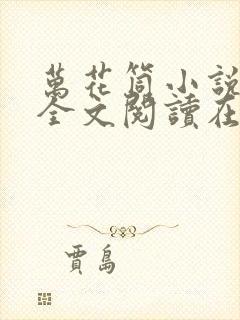 萬花筒小說
全文閱讀在
賈島